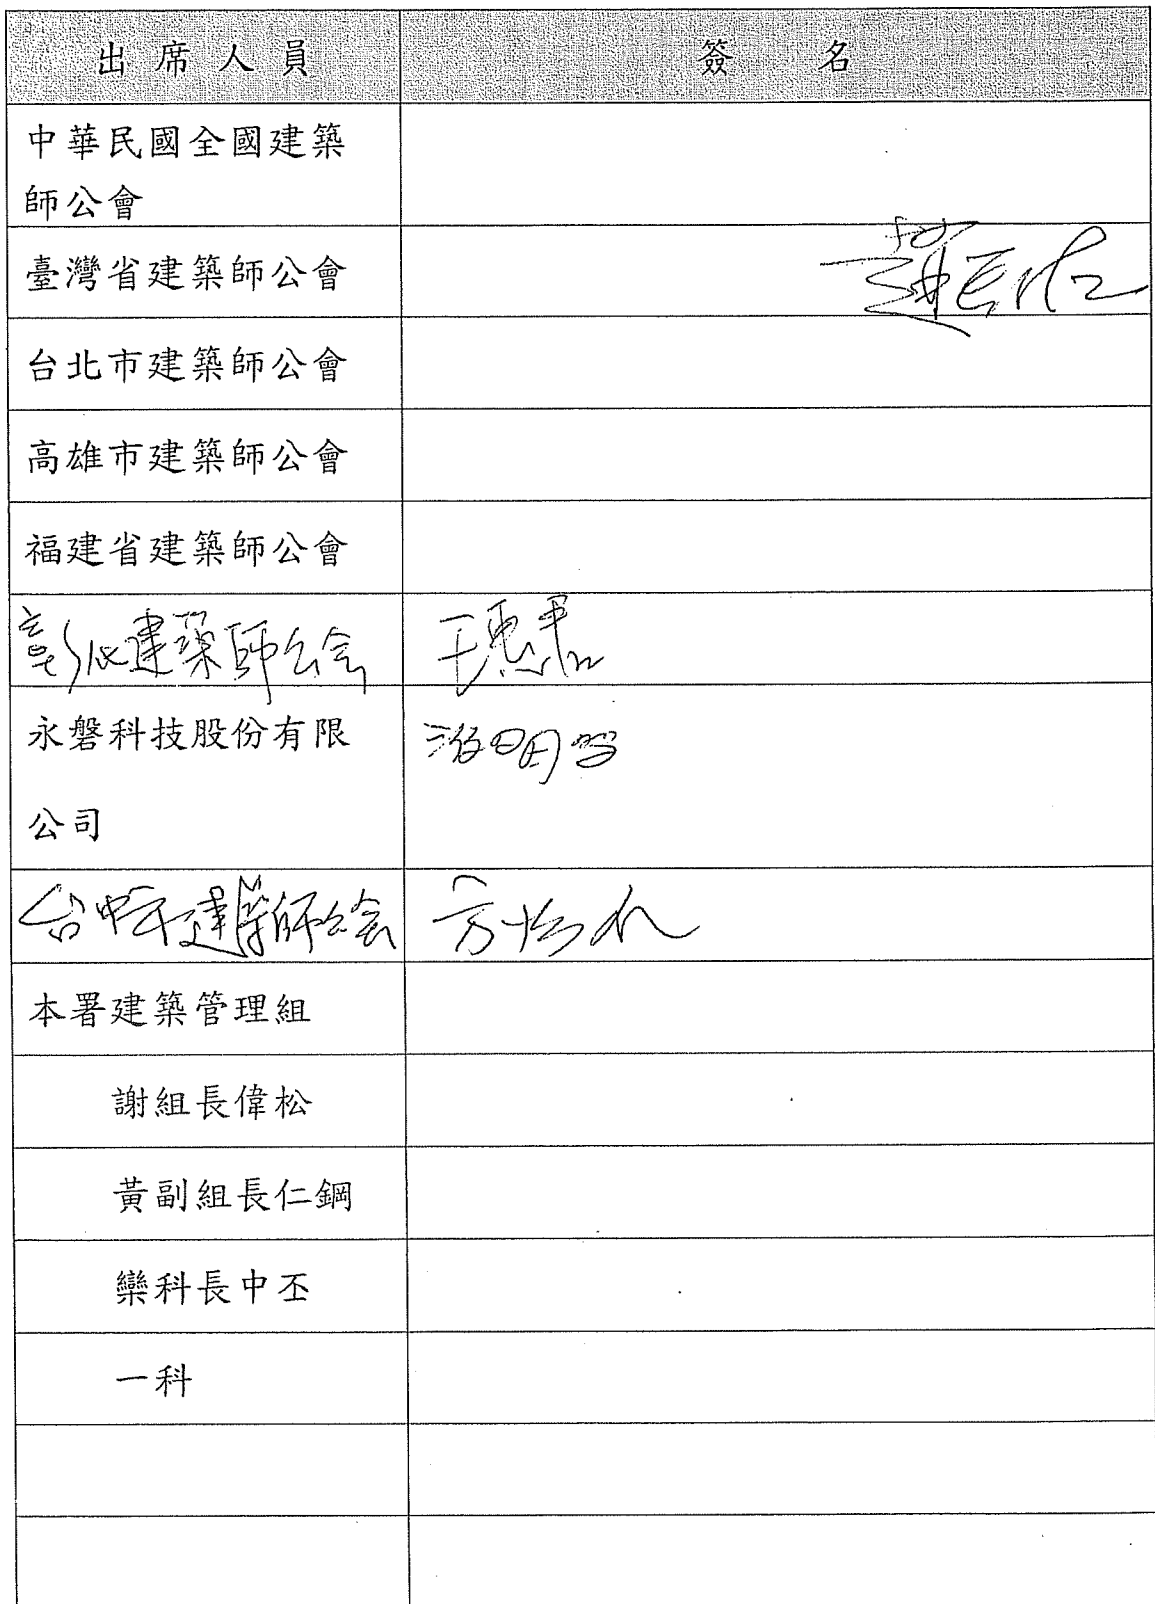 出席人員 簽名
中華民國全國建築
師公會
臺灣省建築師公會
台北市建築師公會
高雄市建築師公會
福建省建築師公會
彰化建築師公会
永磐科技股份有限
公司
台中市建築師公会
本署建築管理組
謝組長偉松
黃副組長仁鋼
欒科長中丕
一科